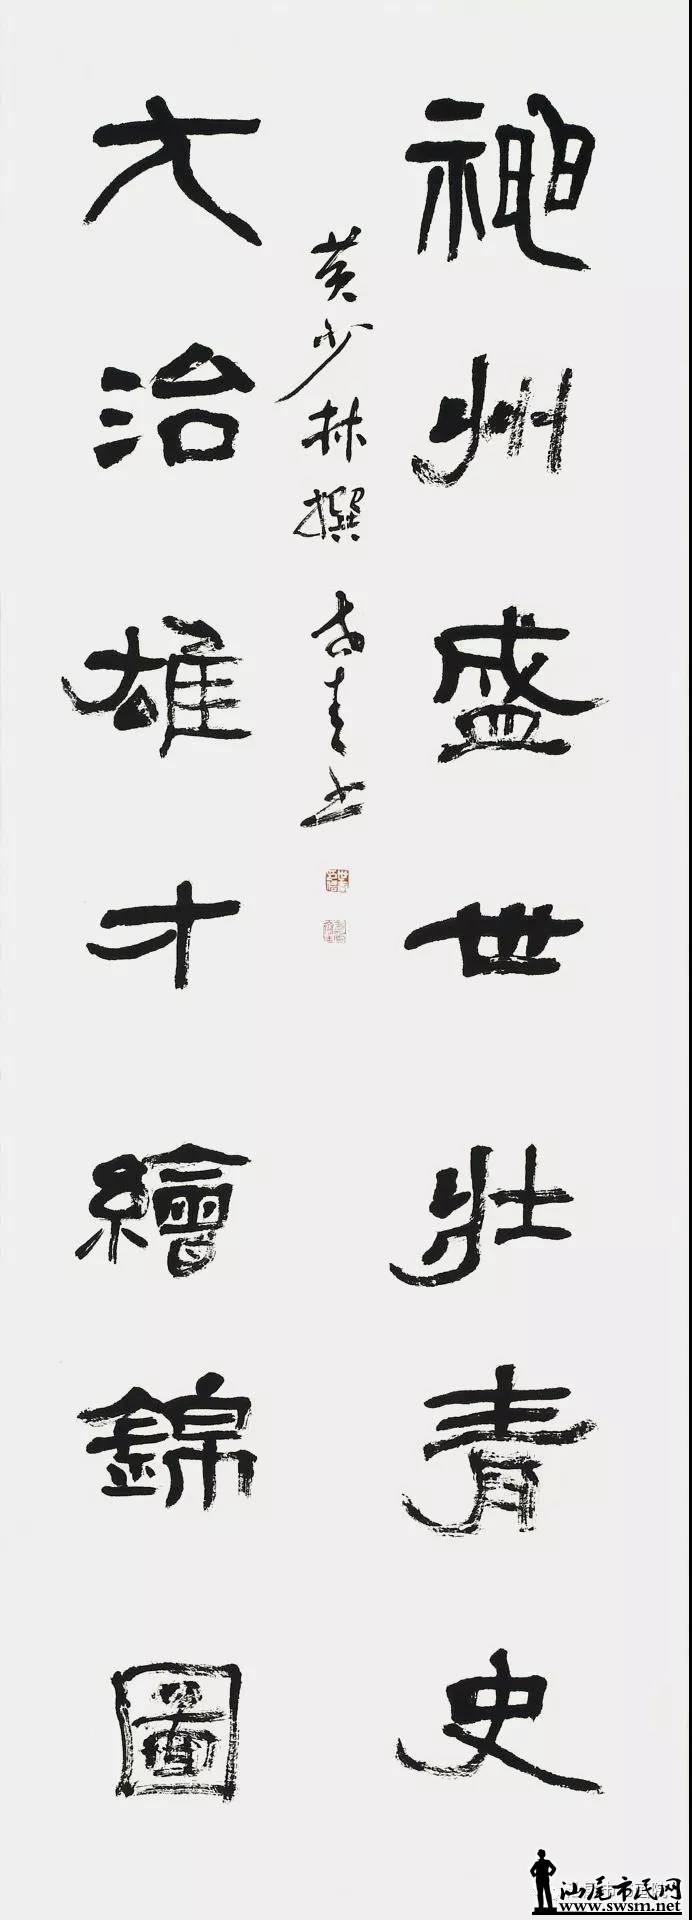 神州盛世壯青史
大治雄才繪錦圖
黄少林撰
汕尾市民网
www.swsm.net